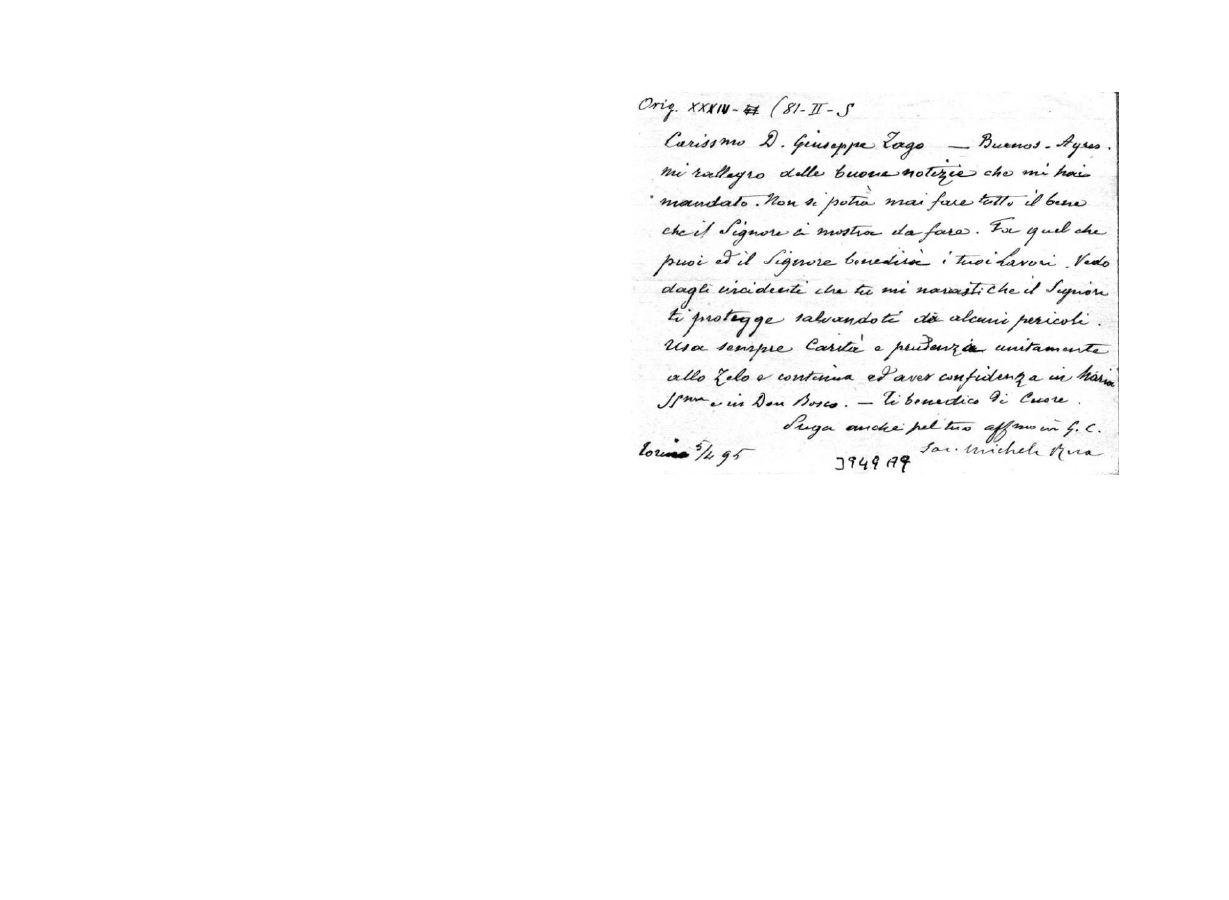 Orig. XXXIV- (81-II-S
Carissmo D. Giuseppe Zago — Buenos-Ayres.
Mi rallegro delle buone notizie che mi hai
mandato. Non si potrà mai fare tutto il bene
che il Signore ci mostra da fare. Fa quel che
puoi ed il Signore benedirà i tuoi lavori. Vedo
dagli incidenti che tu mi narasti che il Signore
ti protegge salvandoti da alcuni pericoli.
Usa sempre Carità e prudenza unitamente
allo Zelo e continua ed aver confidenza in Maria
SSma e in Don Bosco. — Ti benedico di Cuore.
Prega anche pel tuo affmo in G. C.
Torino 5/4 95 Sac. Michele Rua
3949 A9